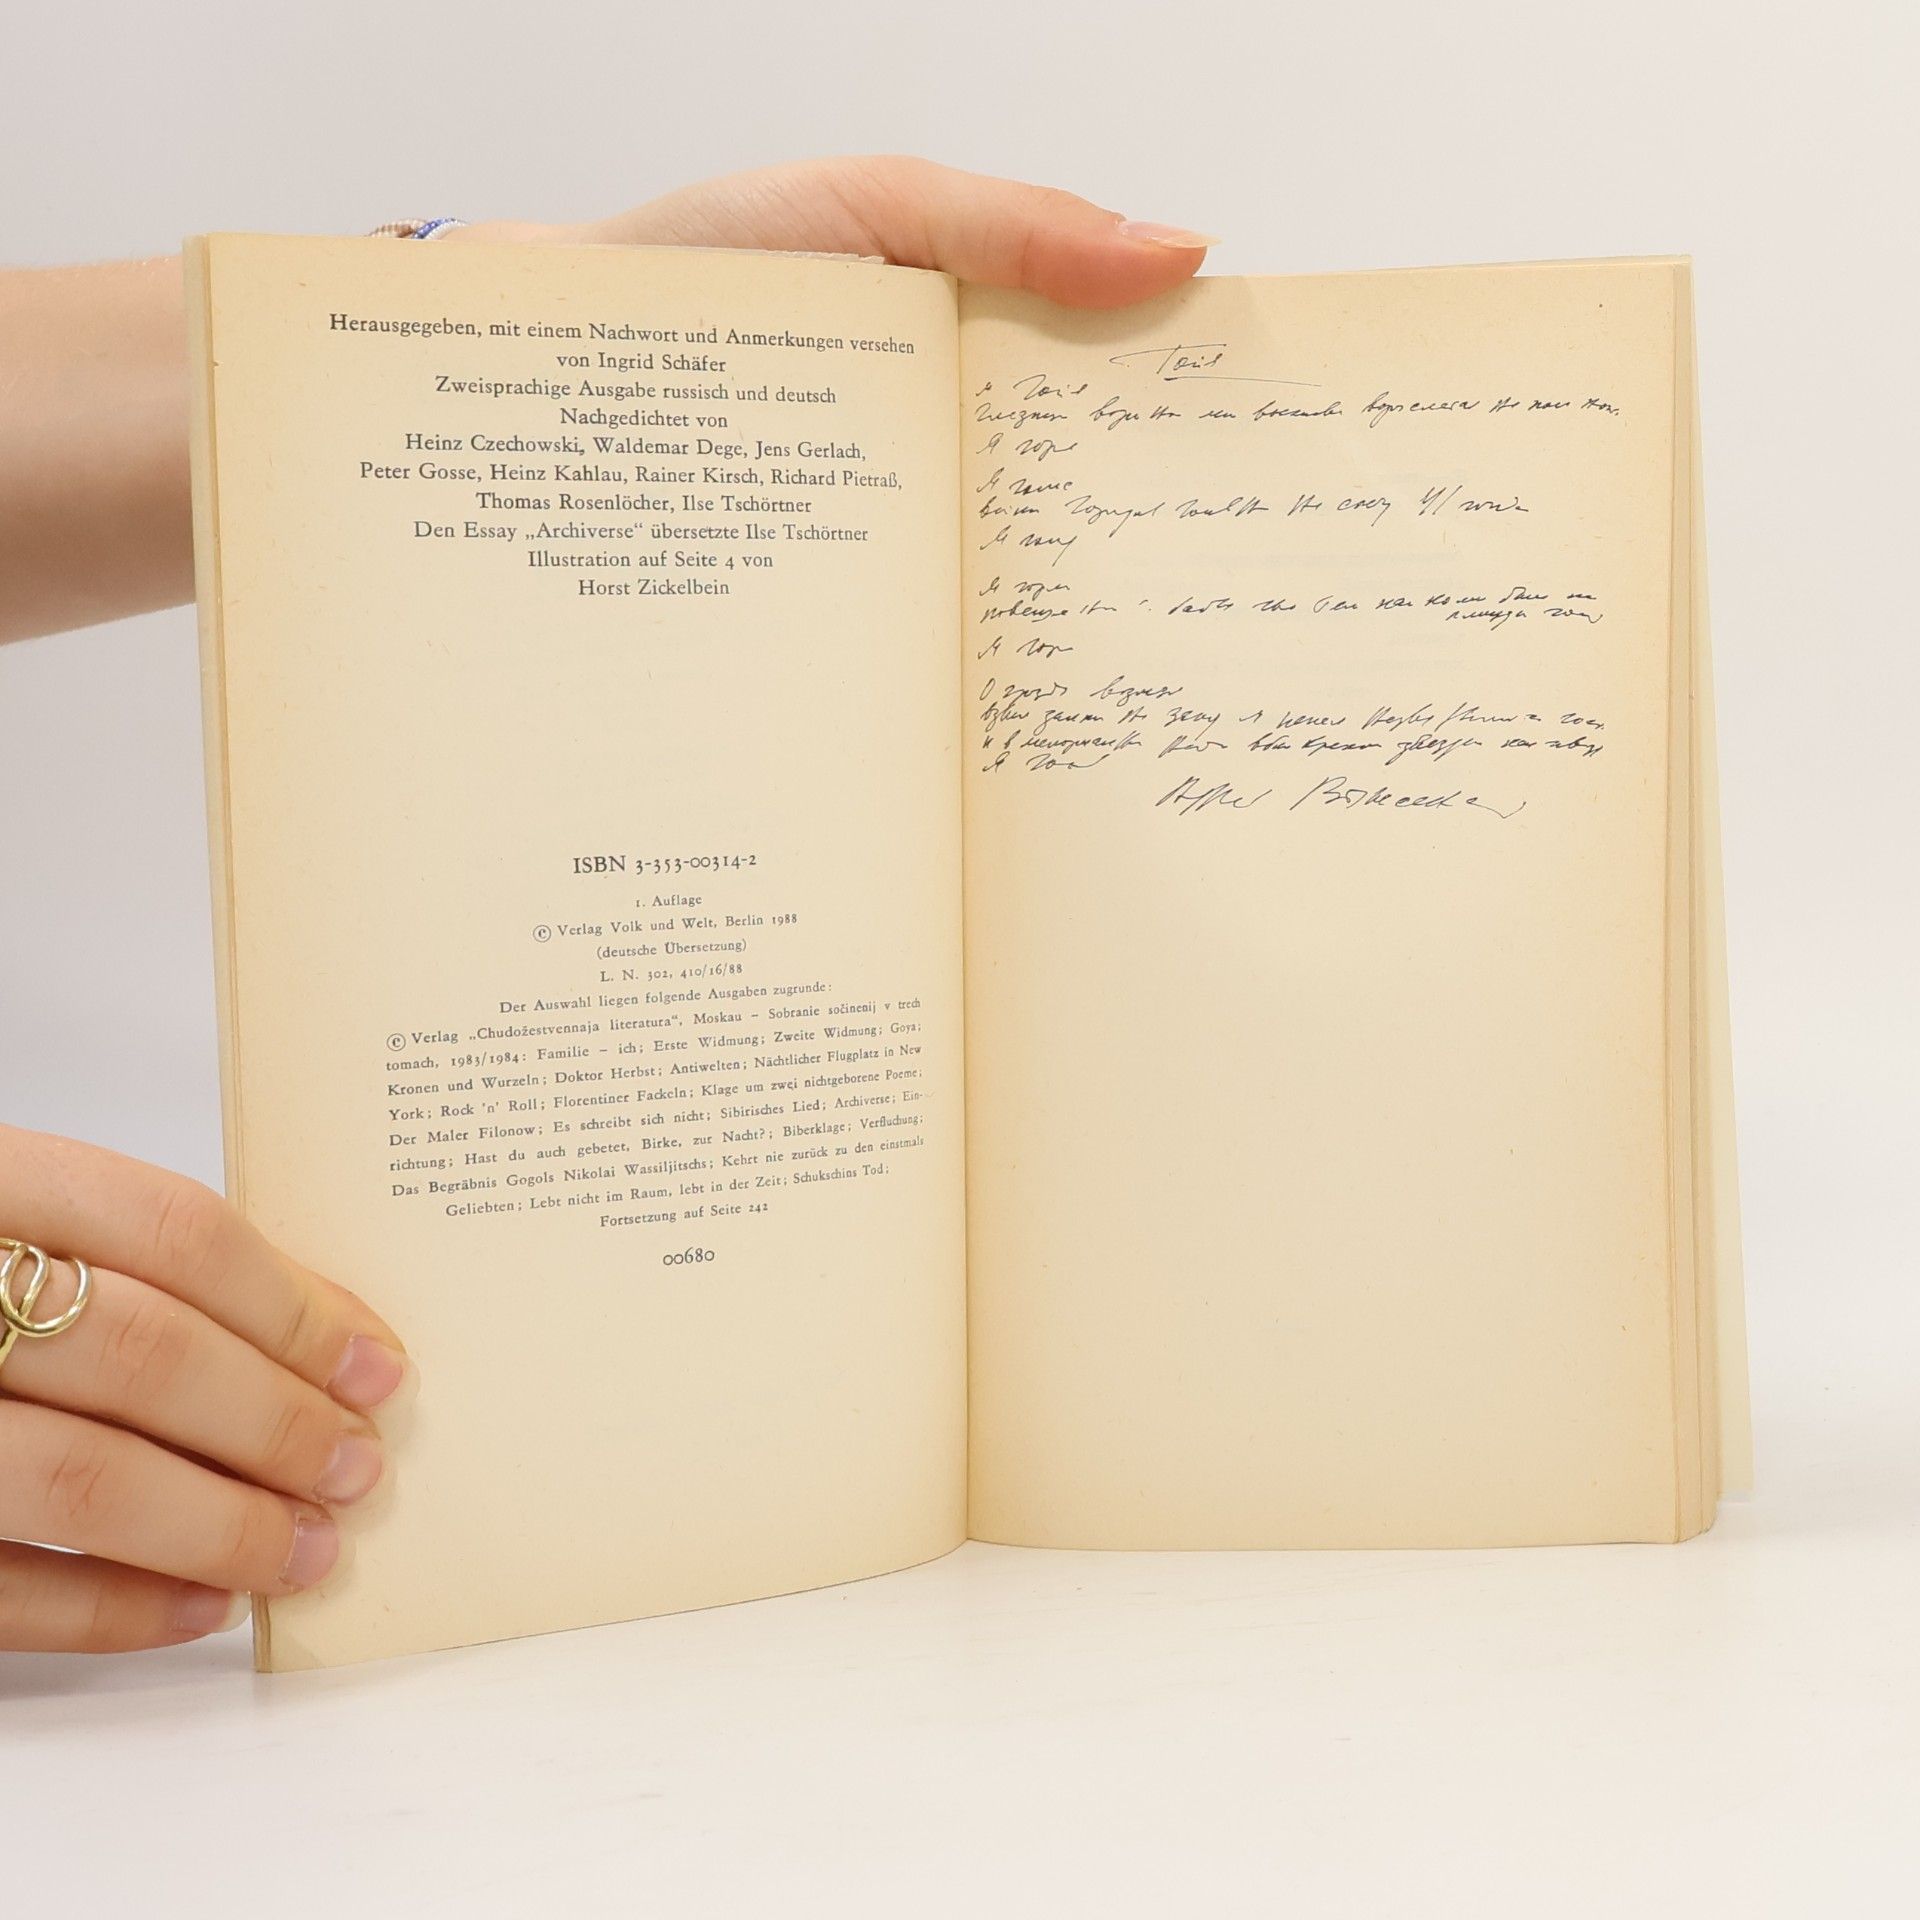 Herausgegeben, mit einem Nachwort und Anmerkungen versehen
von Ingrid Schäfer
Zweisprachige Ausgabe russisch und deutsch
Nachgedichtet von
Heinz Czechowski, Waldemar Dege, Jens Gerlach,
Peter Gosse, Heinz Kahlau, Rainer Kirsch, Richard Pietraß,
Thomas Rosenlöcher, Ilse Tschörtner
Den Essay „Archiverse“ übersetzte Ilse Tschörtner
Illustration auf Seite 4 von
Horst Zickelbein
ISBN 3-353-00314-2
1. Auflage
© Verlag Volk und Welt, Berlin 1988
(deutsche Übersetzung)
L. N. 302, 410/16/88
Der Auswahl liegen folgende Ausgaben zugrunde:
© Verlag „Chudožestvennaja literatura“, Moskau – Sobranie sočinenij v trech
tomach, 1983/1984: Familie – ich; Erste Widmung; Zweite Widmung; Goya;
Kronen und Wurzeln; Doktor Herbst; Antiwelten; Nächtlicher Flugplatz in New
York; Rock 'n' Roll; Florentiner Fackeln; Klage um zwei nichtgeborene Poeme;
Der Maler Filonow; Es schreibt sich nicht; Sibirisches Lied; Archiverse; Ein-
richtung; Hast du auch gebetet, Birke, zur Nacht?; Biberklage; Verfluchung;
Das Begräbnis Gogols Nikolai Wassiljitschs; Kehrt nie zurück zu den einstmals
Geliebten; Lebt nicht im Raum, lebt in der Zeit; Schukschins Tod;
Fortsetzung auf Seite 242
00680
Гойя
Я Гойя
Я горе
Я
на снегу 41
Я
Я
как
Я
О грозди
я
и в небо вбил звезды как
Я
Андрей Вознесенский